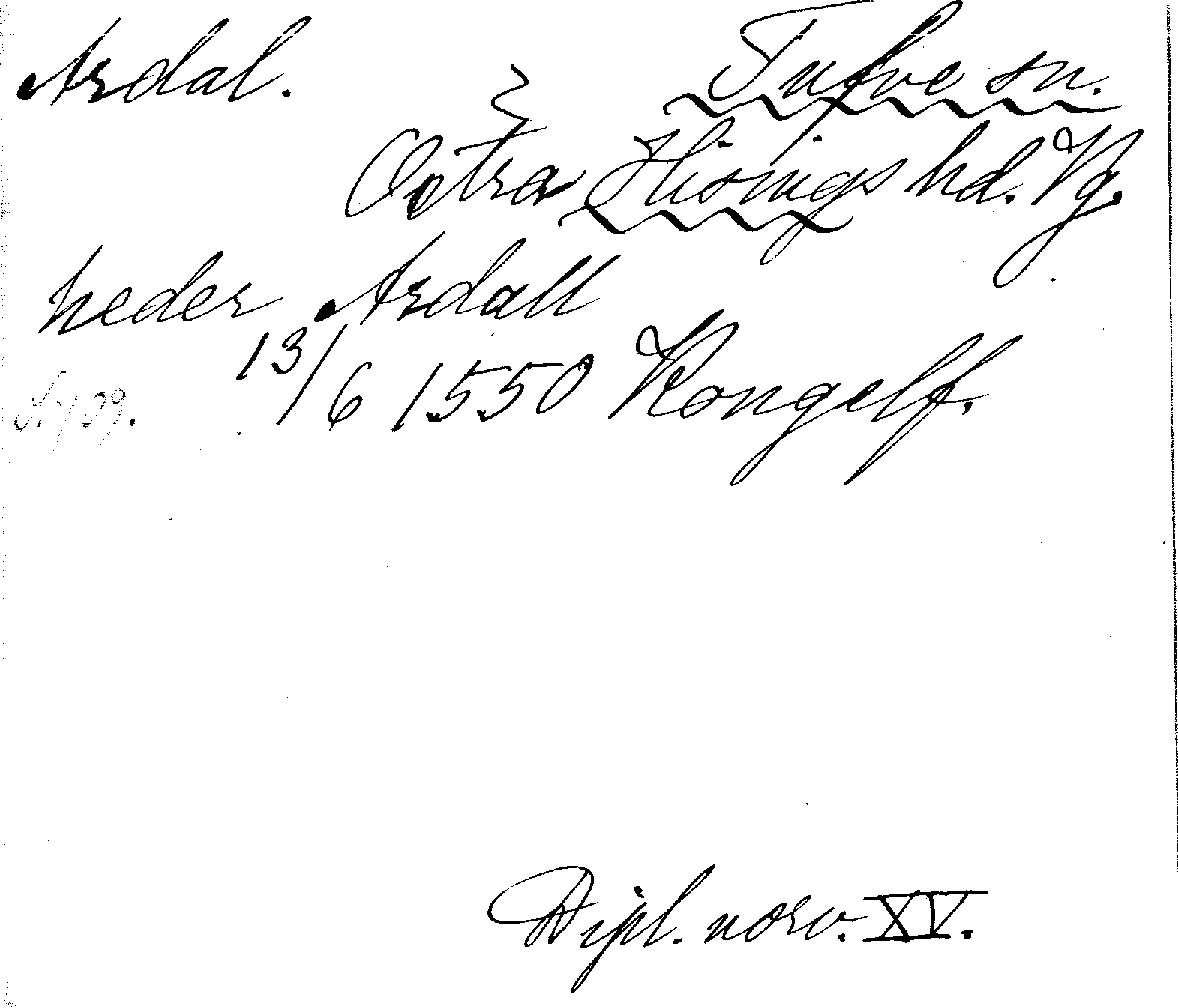 Ardal. Tufve sn.
Östra Hisings hd. Vg.
heder Ardall
S. 709. 13/6 1550 Kongelf.
Dipl. norv. XV.